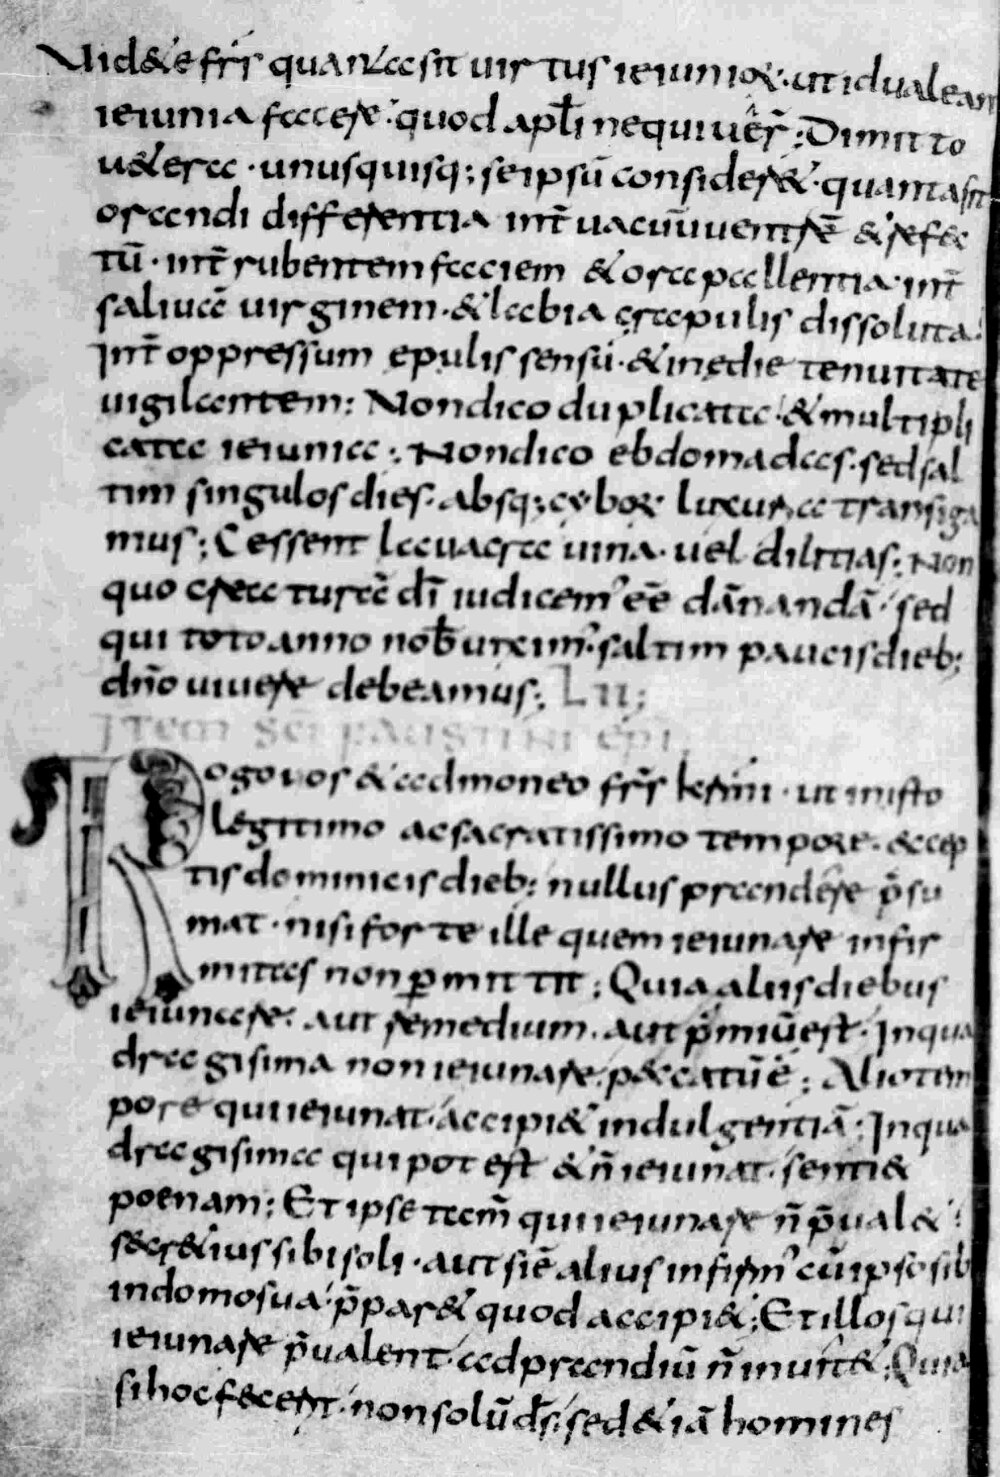 Vid&e frs̄ quanta sit uirtus ieiunior. ut id ualean
ieiunia facere. quod apłi nequiuer̄; Dimitto
u&era. unusquisq; se ipsū consider&. quanta sit
orandi differentia. int̄ uacuū uentrē & refec
tū. int̄ rubentem faciem & ora pallentia. int̄
saliuā uirginem. & labia crapulis dissoluta.
Int̄ oppressum epulis sensū. & inędie tenuitate
uigilantem: Non dico duplicata. & multipli
cata ieiunia; Non dico ebdomadas. sed sal
tim singulos dies. absq; cybor luxuria transiga
mus; Cessent lauacra uina. uel dilitias; Non
quo creaturā dī iudicem' eē dānandā. sed
qui toto anno nob̄ uixim'. saltim paucis dieb;
dn̄o uiuere debeamus; LII;
Item sci faustini epi
Rogo uos & admoneo frs̄ kr̄mi. ut in isto
legitimo ac sacratissimo tempore. excep
tis dominicis dieb; nullus prandere p̄su
mat. nisi forte ille quem ieiunare infir
mitas non ꝑmittit; Quia aliis diebus
ieiunare. aut remedium. aut p̄miū est. In qua
dragisima non ieiunare. peccatū ē; Alio tem
pore qui ieiunat. accipi& indulgentiā; In qua
dragisima qui potest & n̄ ieiunat. senti&
poenam; Et ipse tam̄ qui ieiunare n̄ p̄ual&.
secr&ius sibi soli. aut si ē alius infirm' cū ipso sib
in domo sua. p̄par& quod accipi&; Et illos qui
ieiunare p̄ualent. ad prandiū n̄ inuit&. Quia
si hoc fecerit. non solū ds̄. sed & iā homines